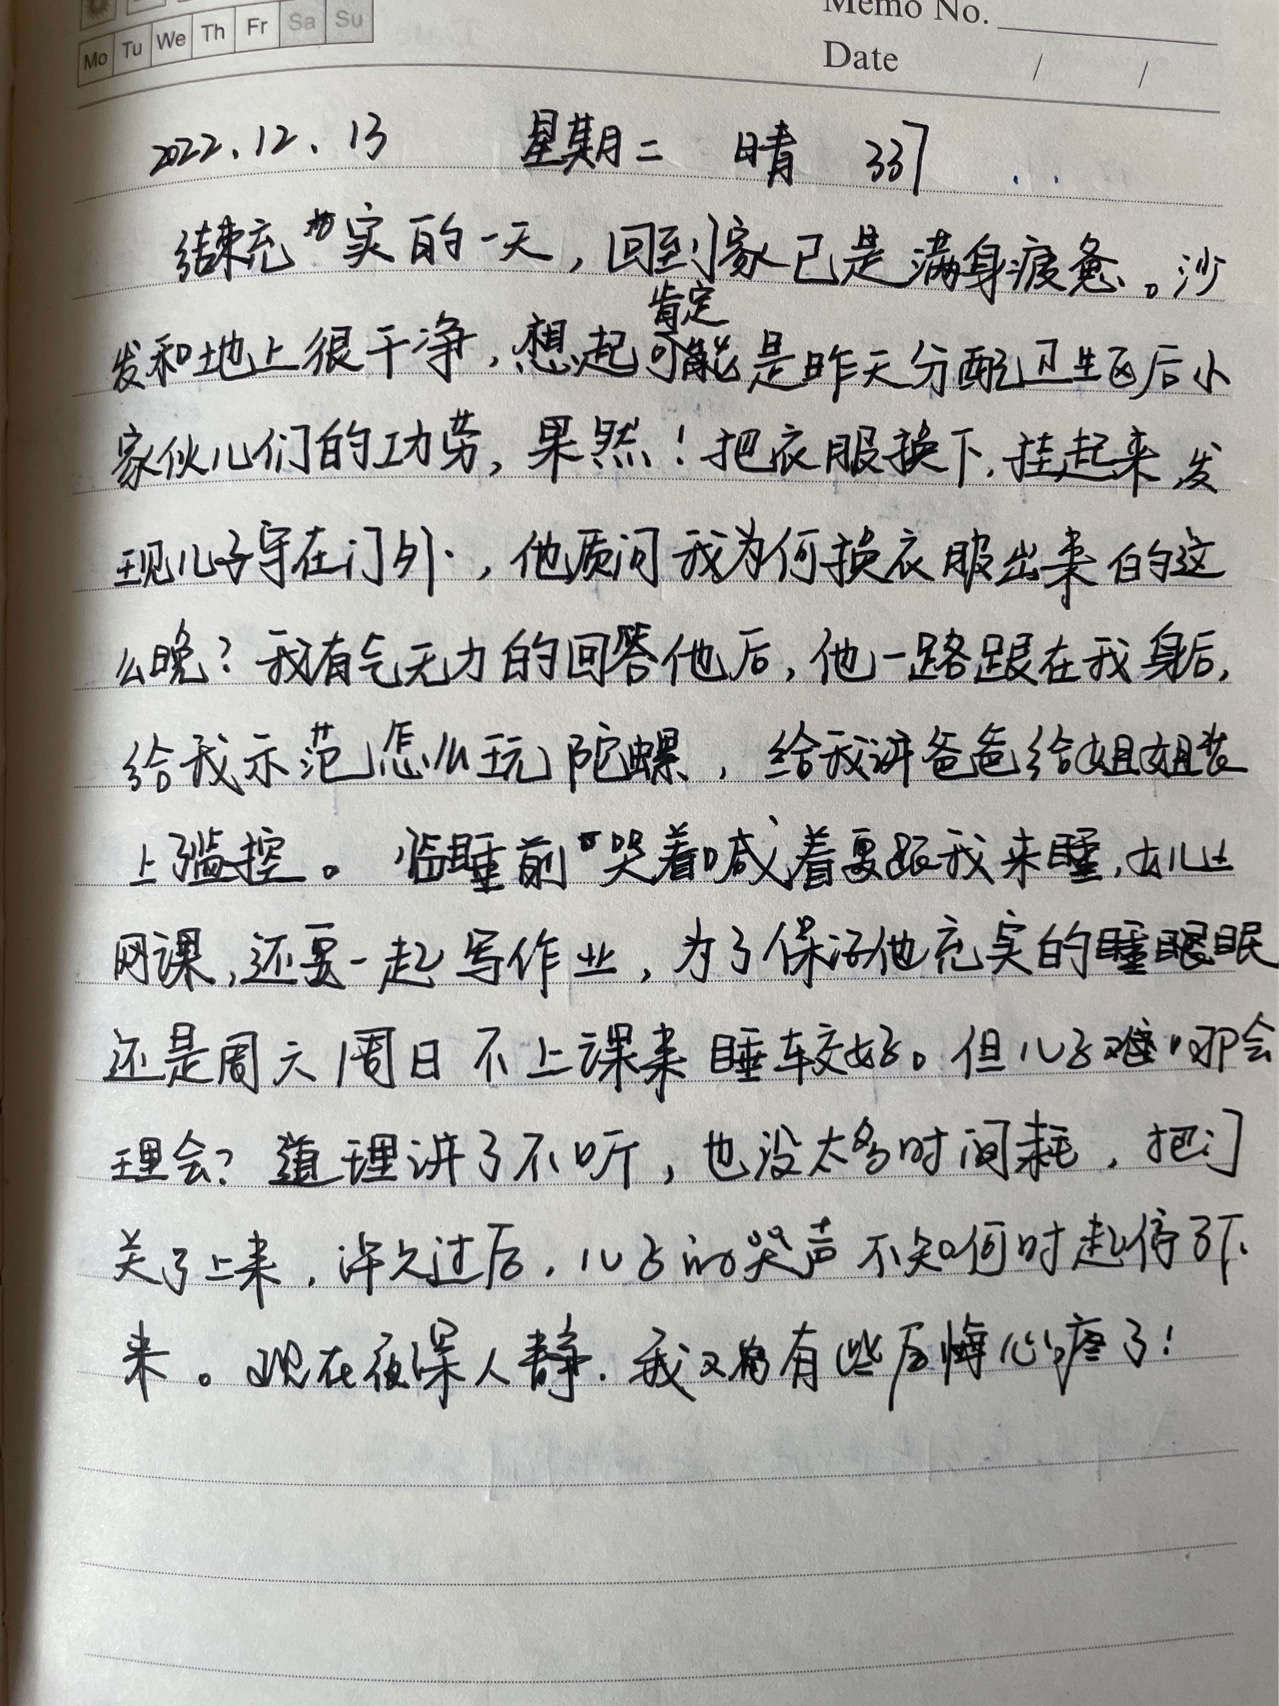 Memo No.
Mo Tu We Th Fr Sa Su
Date / /
2022.12.13 星期二 晴 337
结束充实的一天，回到家已是满身疲惫。沙
肯定
发和地上很干净，想起可能是昨天分配卫生区后小
家伙儿们的功劳，果然！把衣服换下，挂起来，发
现儿子守在门外，他质问我为何换衣服出来的这
么晚？我有气无力的回答他后，他一路跟在我身后，
给我示范怎么玩陀螺，给我讲爸爸给姐姐装
上了监控。临睡前哭着喊着要跟我来睡，女儿上
网课，还要一起写作业，为了保证他充实的睡眠
还是周六周日不上课来睡较好。但儿子难哪会
理会？道理讲了不听，也没太多时间耗，把门
关了上来，许久过后，儿子的哭声不知何时起停了下
来。现在夜深人静，我又有些后悔心疼了！